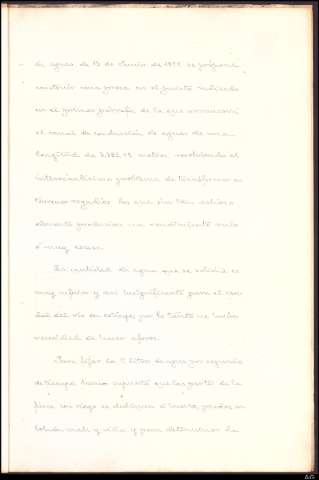 de aguas de 13 de Junio de 1879 se propone
construir una presa en el punto indicado
en el primer párrafo de la que arrancará
el canal de conducción de aguas de una
longitud de metros resolviendo el
interesantísimo problema de transformar en
terrenos regadíos los que sin tan valioso
elemento producían un rendimiento nulo
ó muy escaso.
La cantidad de agua que se solicita es
muy inferior y casi insignificante para el cau-
dal del río en estiaje, por lo tanto no hubo
necesidad de hacer aforos.
Para fijar los litros de agua por segundo
de tiempo hemos supuesto que las partes de la
finca con riego se dediquen á huerta, prados, ar-
bolado, maíz y viña y para determinar la